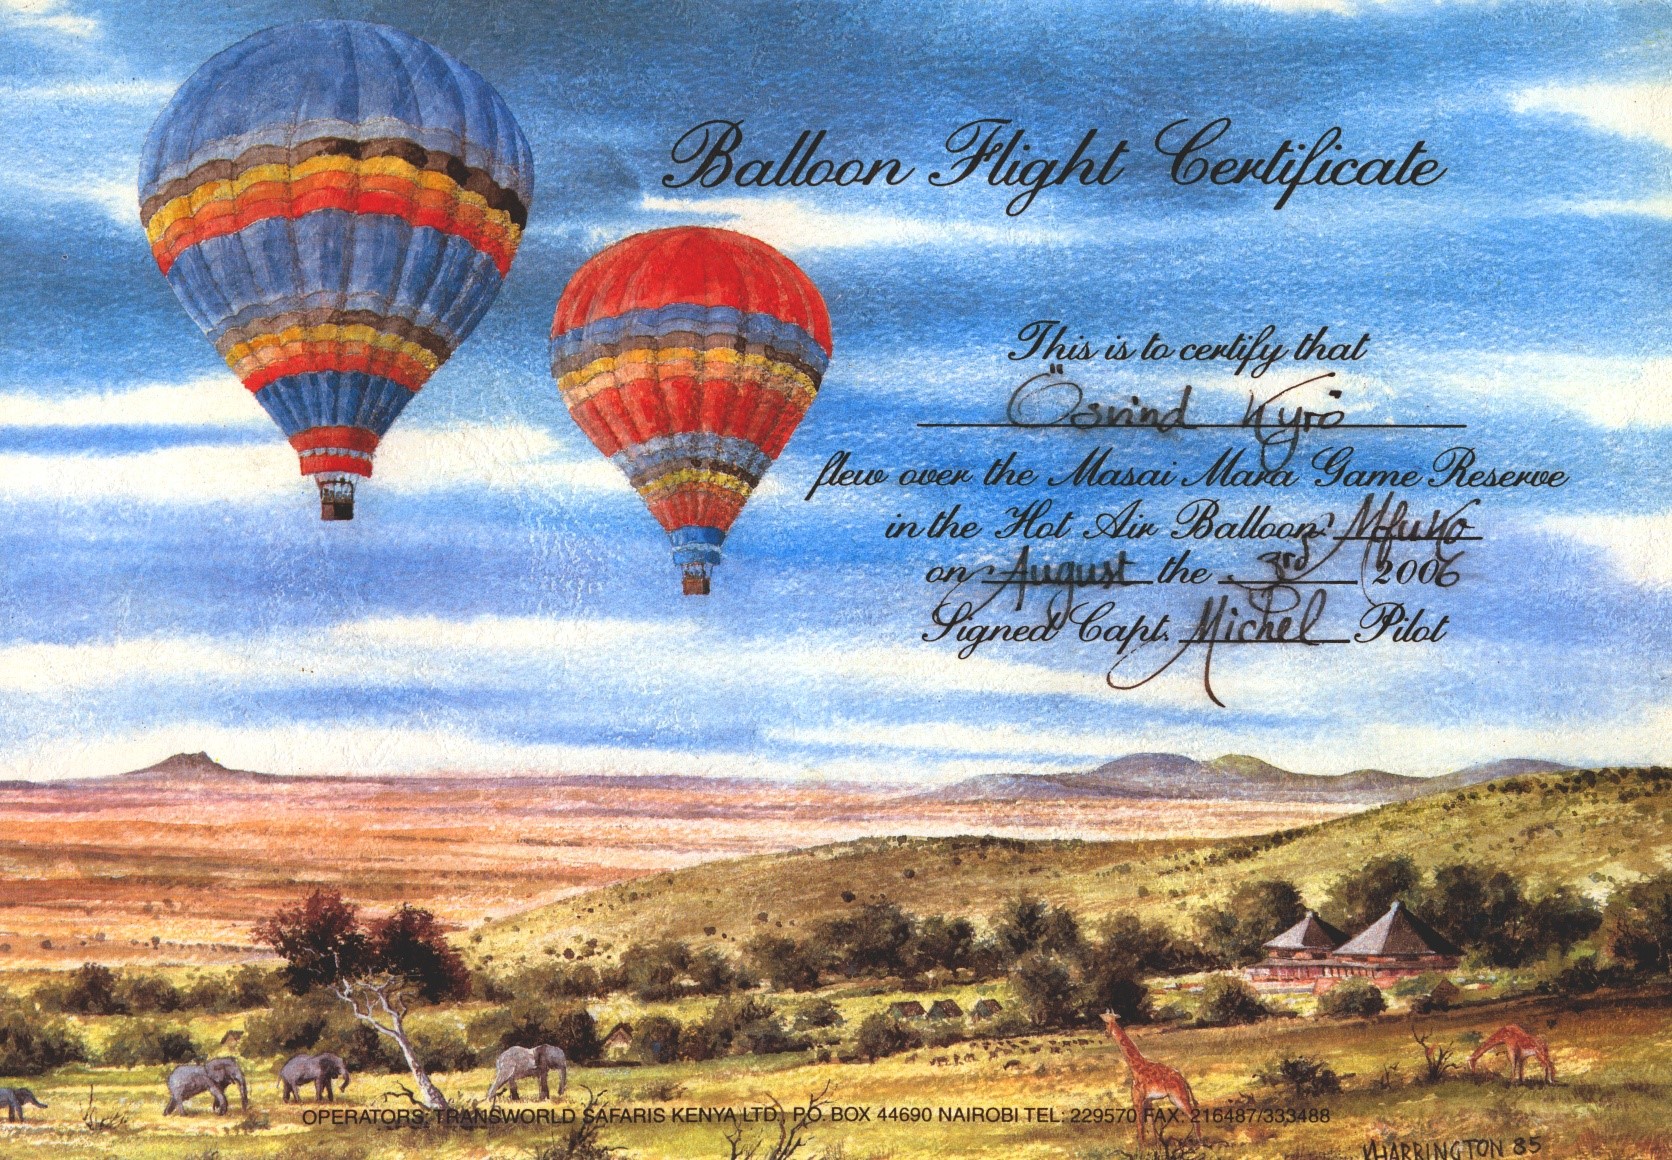 Balloon Flight Certificate
This is to certify that
Ösvind Kyrö
flew over the Masai Mara Game Reserve
in the Hot Air Balloon: Mfuko
on August the 3rd 2006
Signed Capt. Michel Pilot
OPERATORS: TRANSWORLD SAFARIS KENYA LTD., P.O. BOX 44690 NAIROBI TEL: 229570 FAX: 216487/333488
HARRINGTON 85